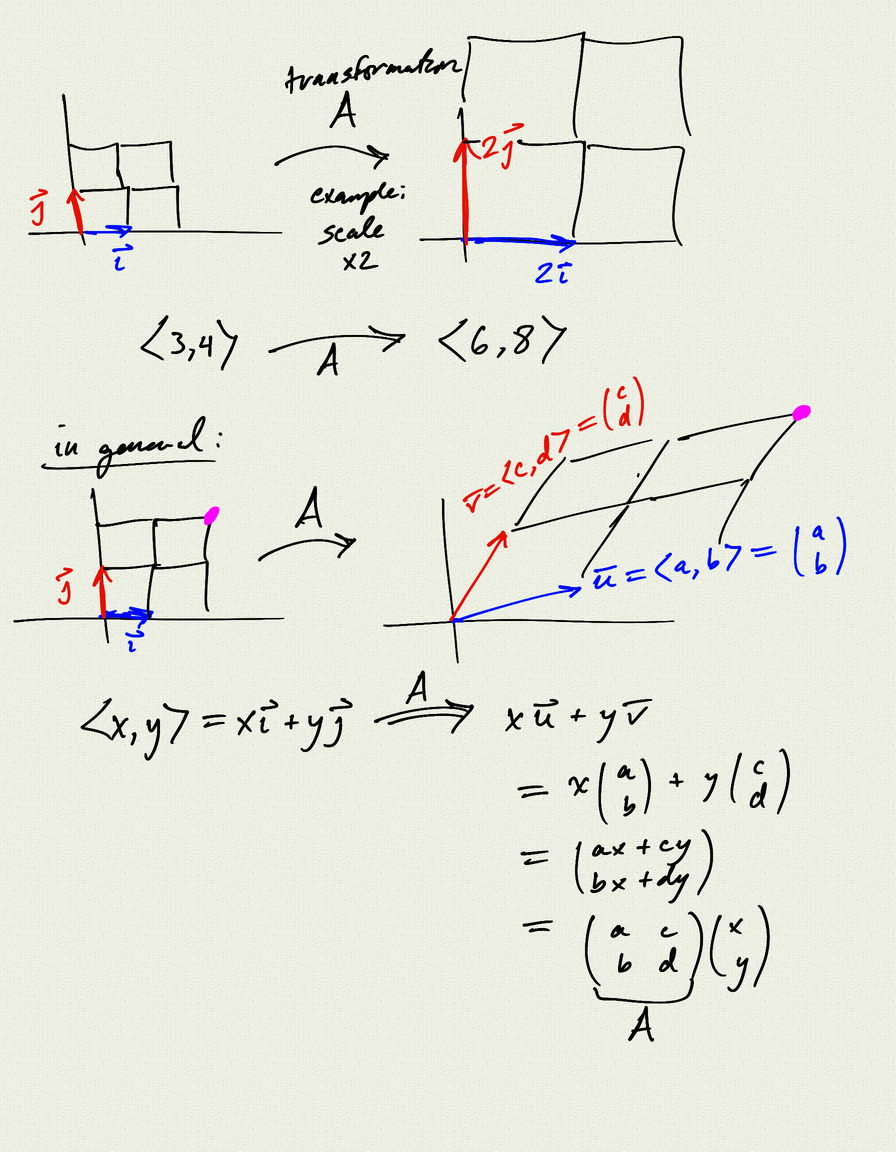 transformation
A
example:
scale
x2
j⃗
i⃗
2j⃗
2i⃗
<3,4> → <6,8>
A
in general:
v̅ = <c,d> = (c d)
A
j⃗
i⃗
u̅ = <a,b> = (a b)
A
<x,y> = xi⃗ + yj⃗ ⇒ xu̅ + yv̅
= x(a b) + y(c d)
= (ax + cy
bx + dy)
= (a c
b d)(x
y)
A